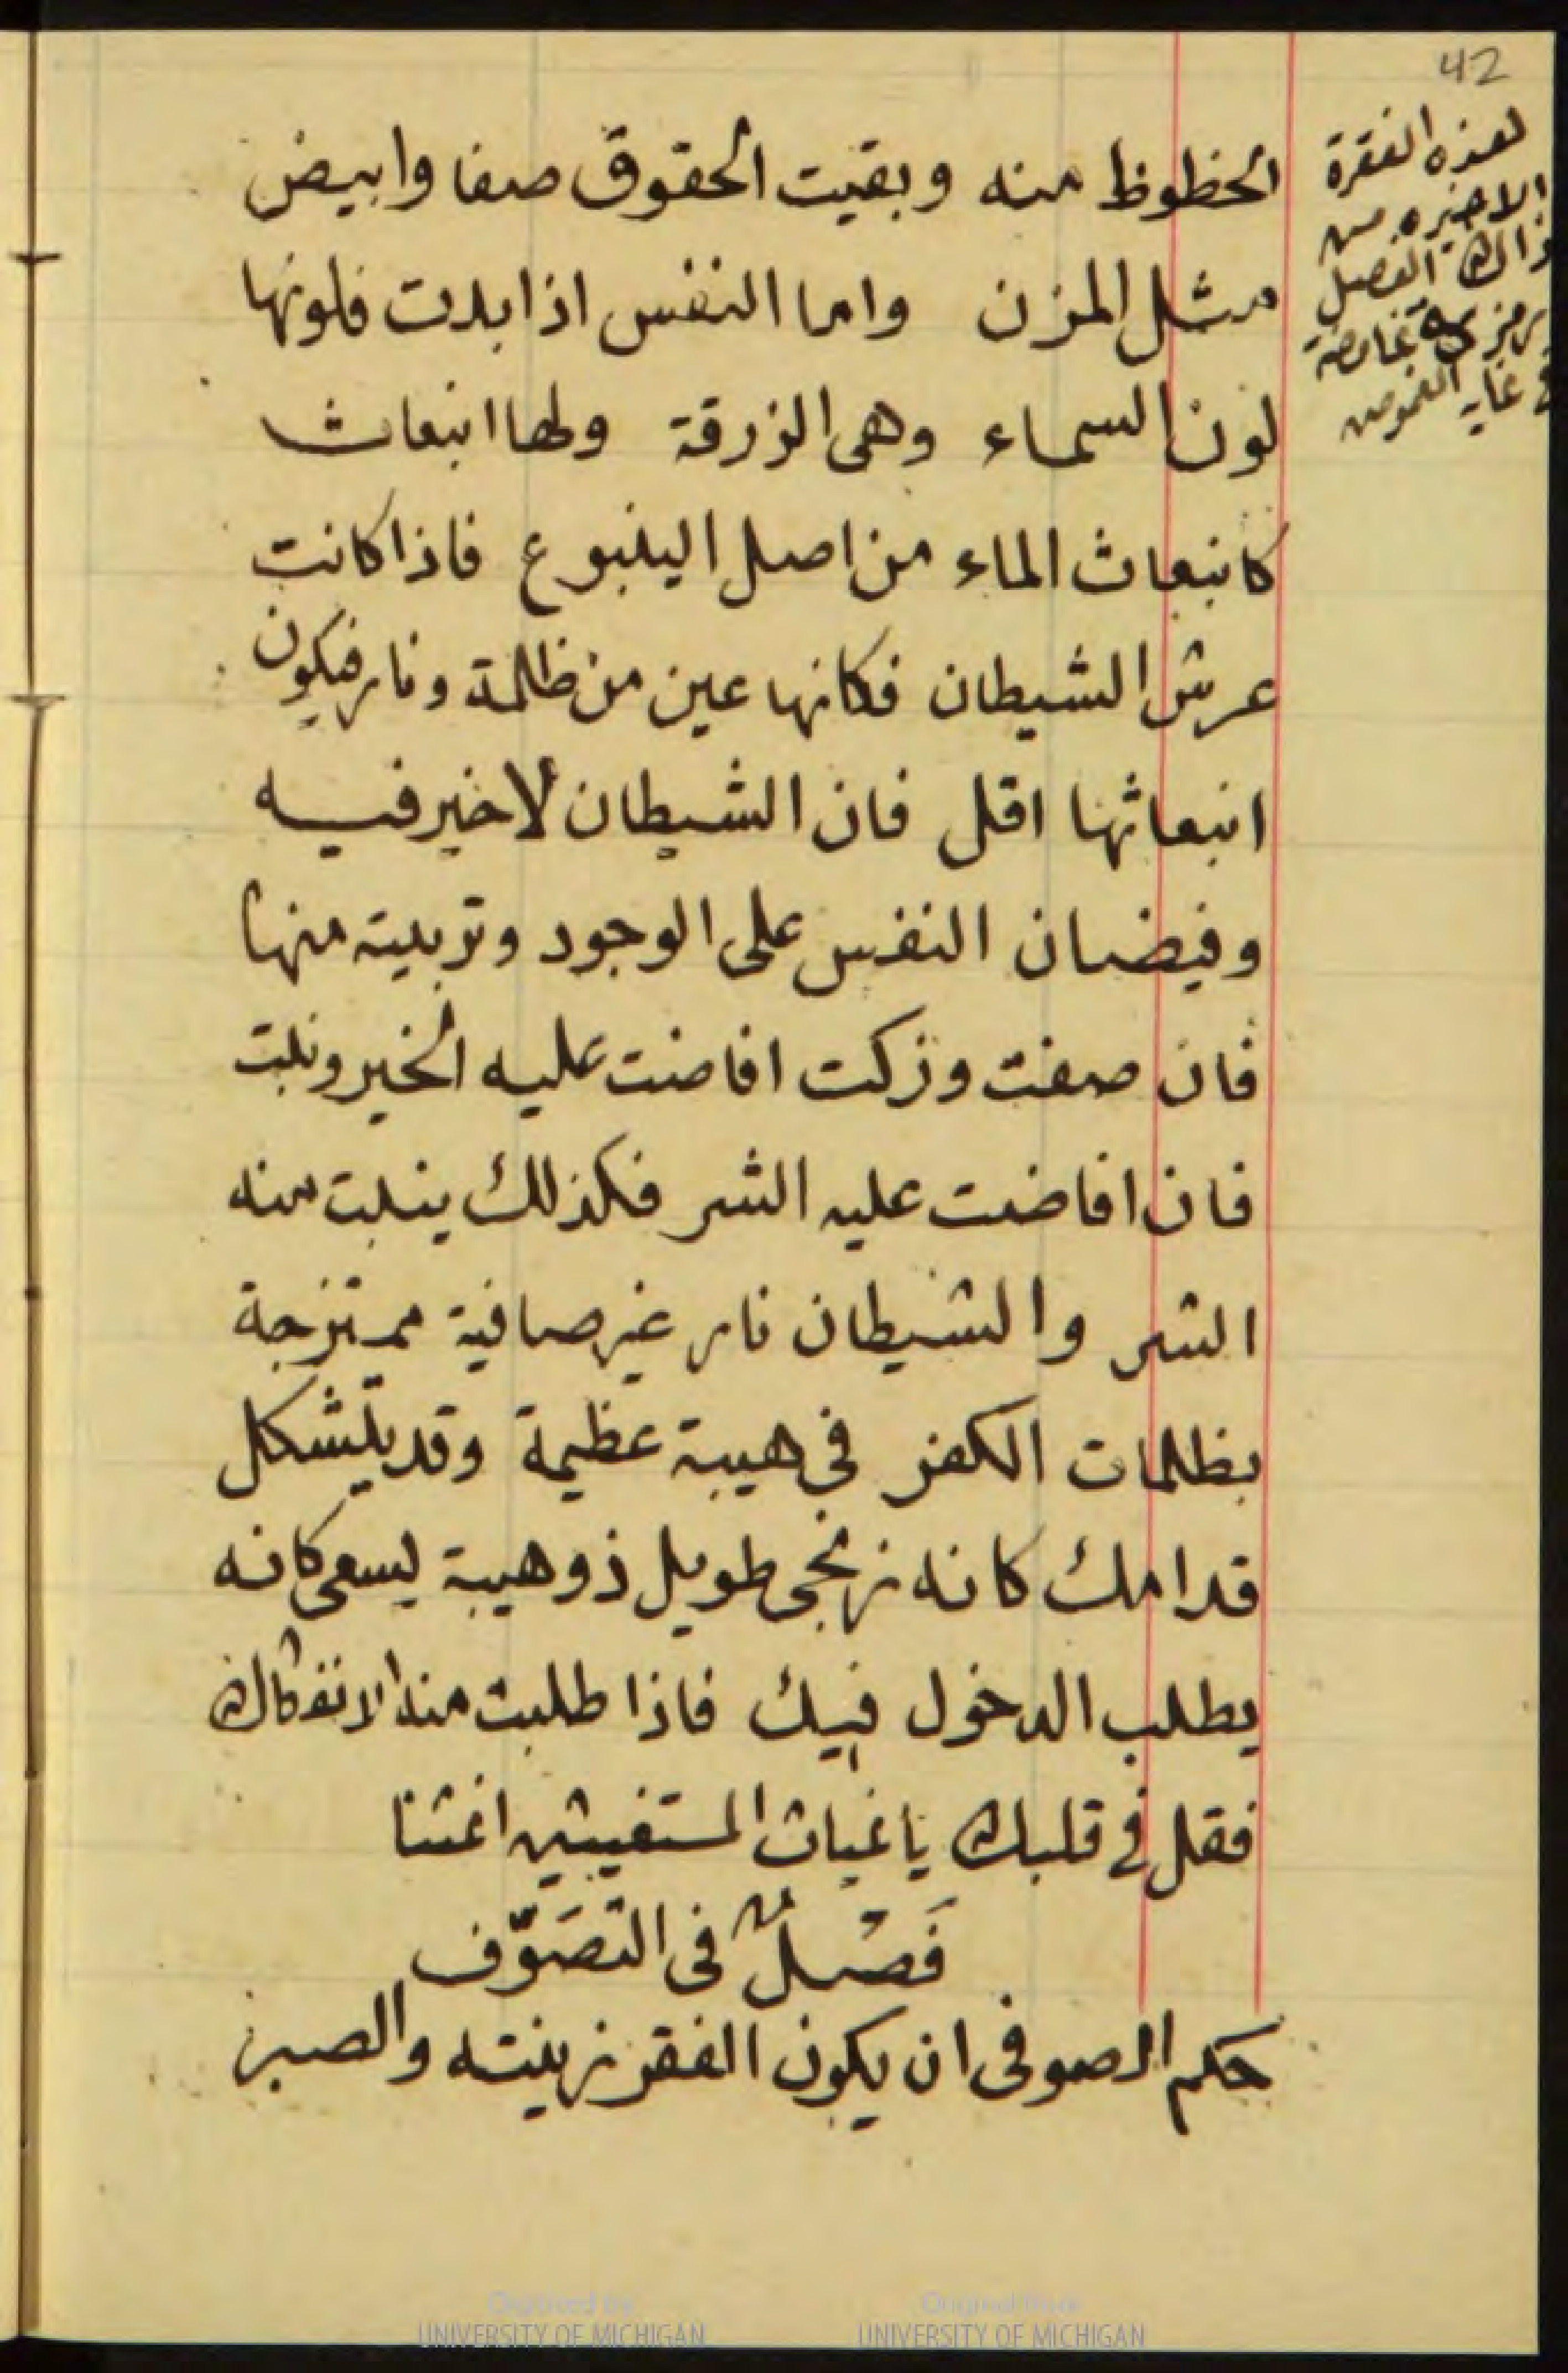 42
لهذه الفقرة
الاخيرة من
ذالك الفصل
رمزية غامضة
في غاية الغموض
الحظوظ منه وبقيت الحقوق صفا وابيض
مثل المزن واما النفس اذا بدت فلونها
لون السماء وهى الزرقة ولها انبعاث
كانبعاث الماء من اصل الينبوع فاذا كانت
عرش الشيطان فكانها عين من ظلمة ونار فيكون
انبعاثها اقل فان الشيطان لا خير فيه
وفيضان النفس على الوجود وتربيته منها
فان صفت وزكت افاضت عليه الخير ونبت
فان افاضت عليه الشر فكذلك ينبت منه
الشر والشيطان نار غير صافية ممتزجة
بظلمات الكفر فى هيبة عظيمة وقد يتشكل
قدامك كانه زنجى طويل ذو هيبة يسعى كانه
يطلب الدخول فيك فاذا طلبت منه الانفكاك
فقل في قلبك يا غياث المستغيثين اغثنا
فَصْلٌ فى التصَوّف
حكم الصوفى ان يكون الفقر زينته والصبر
Digitized by
UNIVERSITY OF MICHIGAN
Original from
UNIVERSITY OF MICHIGAN